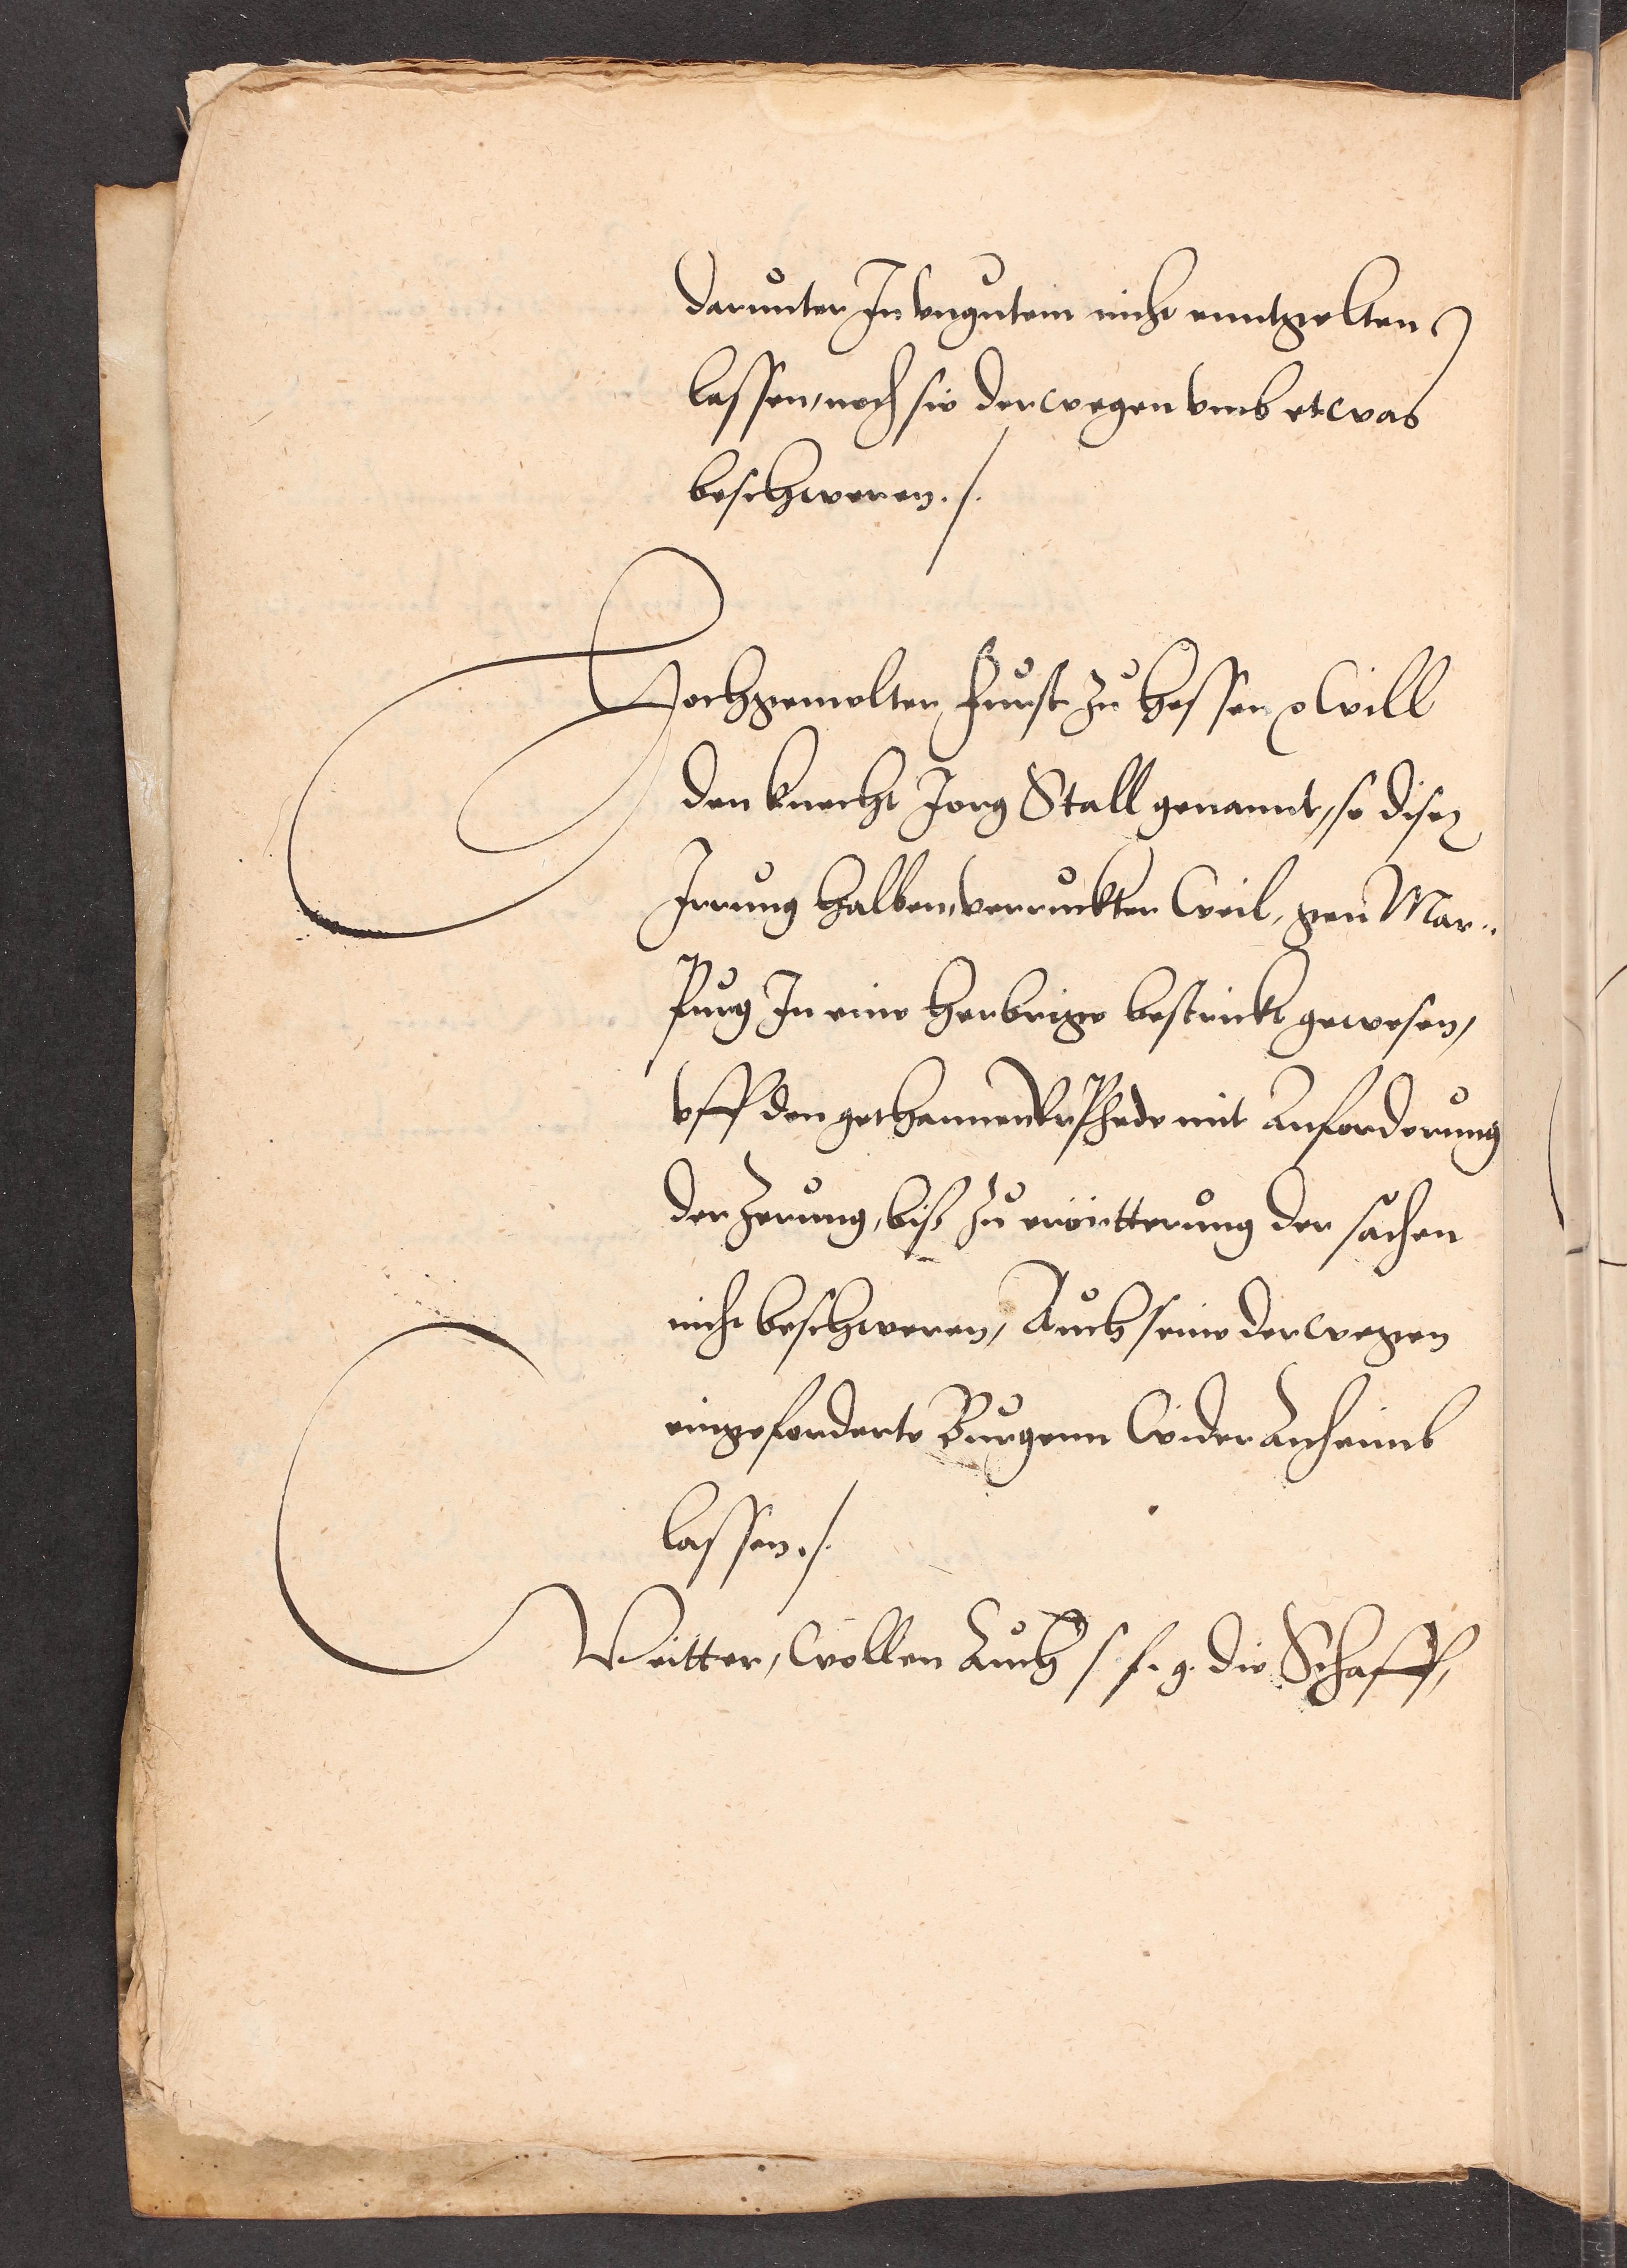 darunter In vngutem nicht enntgelten
lassen, noch sie derwegen vmb etwas
beschweren ./.
Hochgemelter Furst zu Hessen  Will
den knecht Jorg Stall genannt, so diser
Irrung halben, verruckter Weil, gen Mar¬
purg In eine herberge bestrickt gewesen,
vff den gethannen Vrphede mit anforderung
der Zerung, biß zu erörtterung der sachen
nicht beschweren, Auch seine derwegen
eingeforderte Burgenn Wider anheimb
lassen ./.
Weitter, wöllen auch s. f. g. die Schaff,